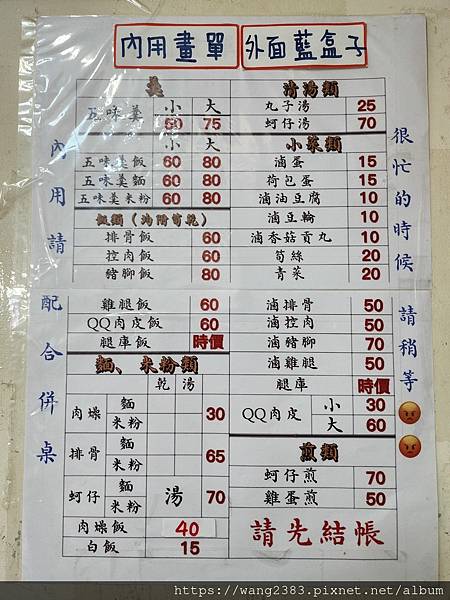 內用畫單
外面藍盒子
內用請配合併桌
羹
小 大
五味羹 60 75
小 大
五味羹飯 60 80
五味羹麵 60 80
五味羹米粉 60 80
飯類(均附筍乾)
排骨飯 60
控肉飯 60
豬腳飯 80
雞腿飯 60
QQ肉皮飯 60
腿庫飯 時價
麵、米粉類
乾 湯
肉燥 麵 米粉 30
排骨 麵 米粉 65
蚵仔 麵 米粉 湯 70
肉燥飯 40
白飯 15
清湯類
丸子湯 25
蚵仔湯 70
小菜類
滷蛋 15
荷包蛋 15
滷油豆腐 10
滷豆輪 10
滷香菇貢丸 10
筍絲 20
青菜 20
滷排骨 50
滷控肉 50
滷豬腳 70
滷雞腿 50
腿庫 時價
QQ肉皮 小 30
大 60
煎類
蚵仔煎 70
雞蛋煎 50
請先結帳
很忙的時候請稍等
https://wang2383.pixnet.net/album